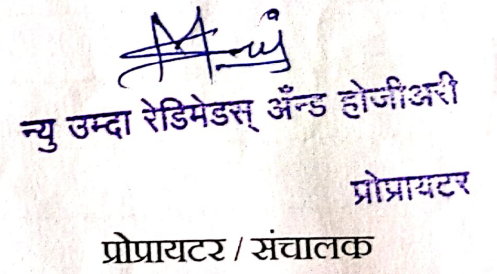 न्यु उम्दा रेडिमेडस् अँन्ड होजीअरी
प्रोप्रायटर
प्रोप्रायटर / संचालक